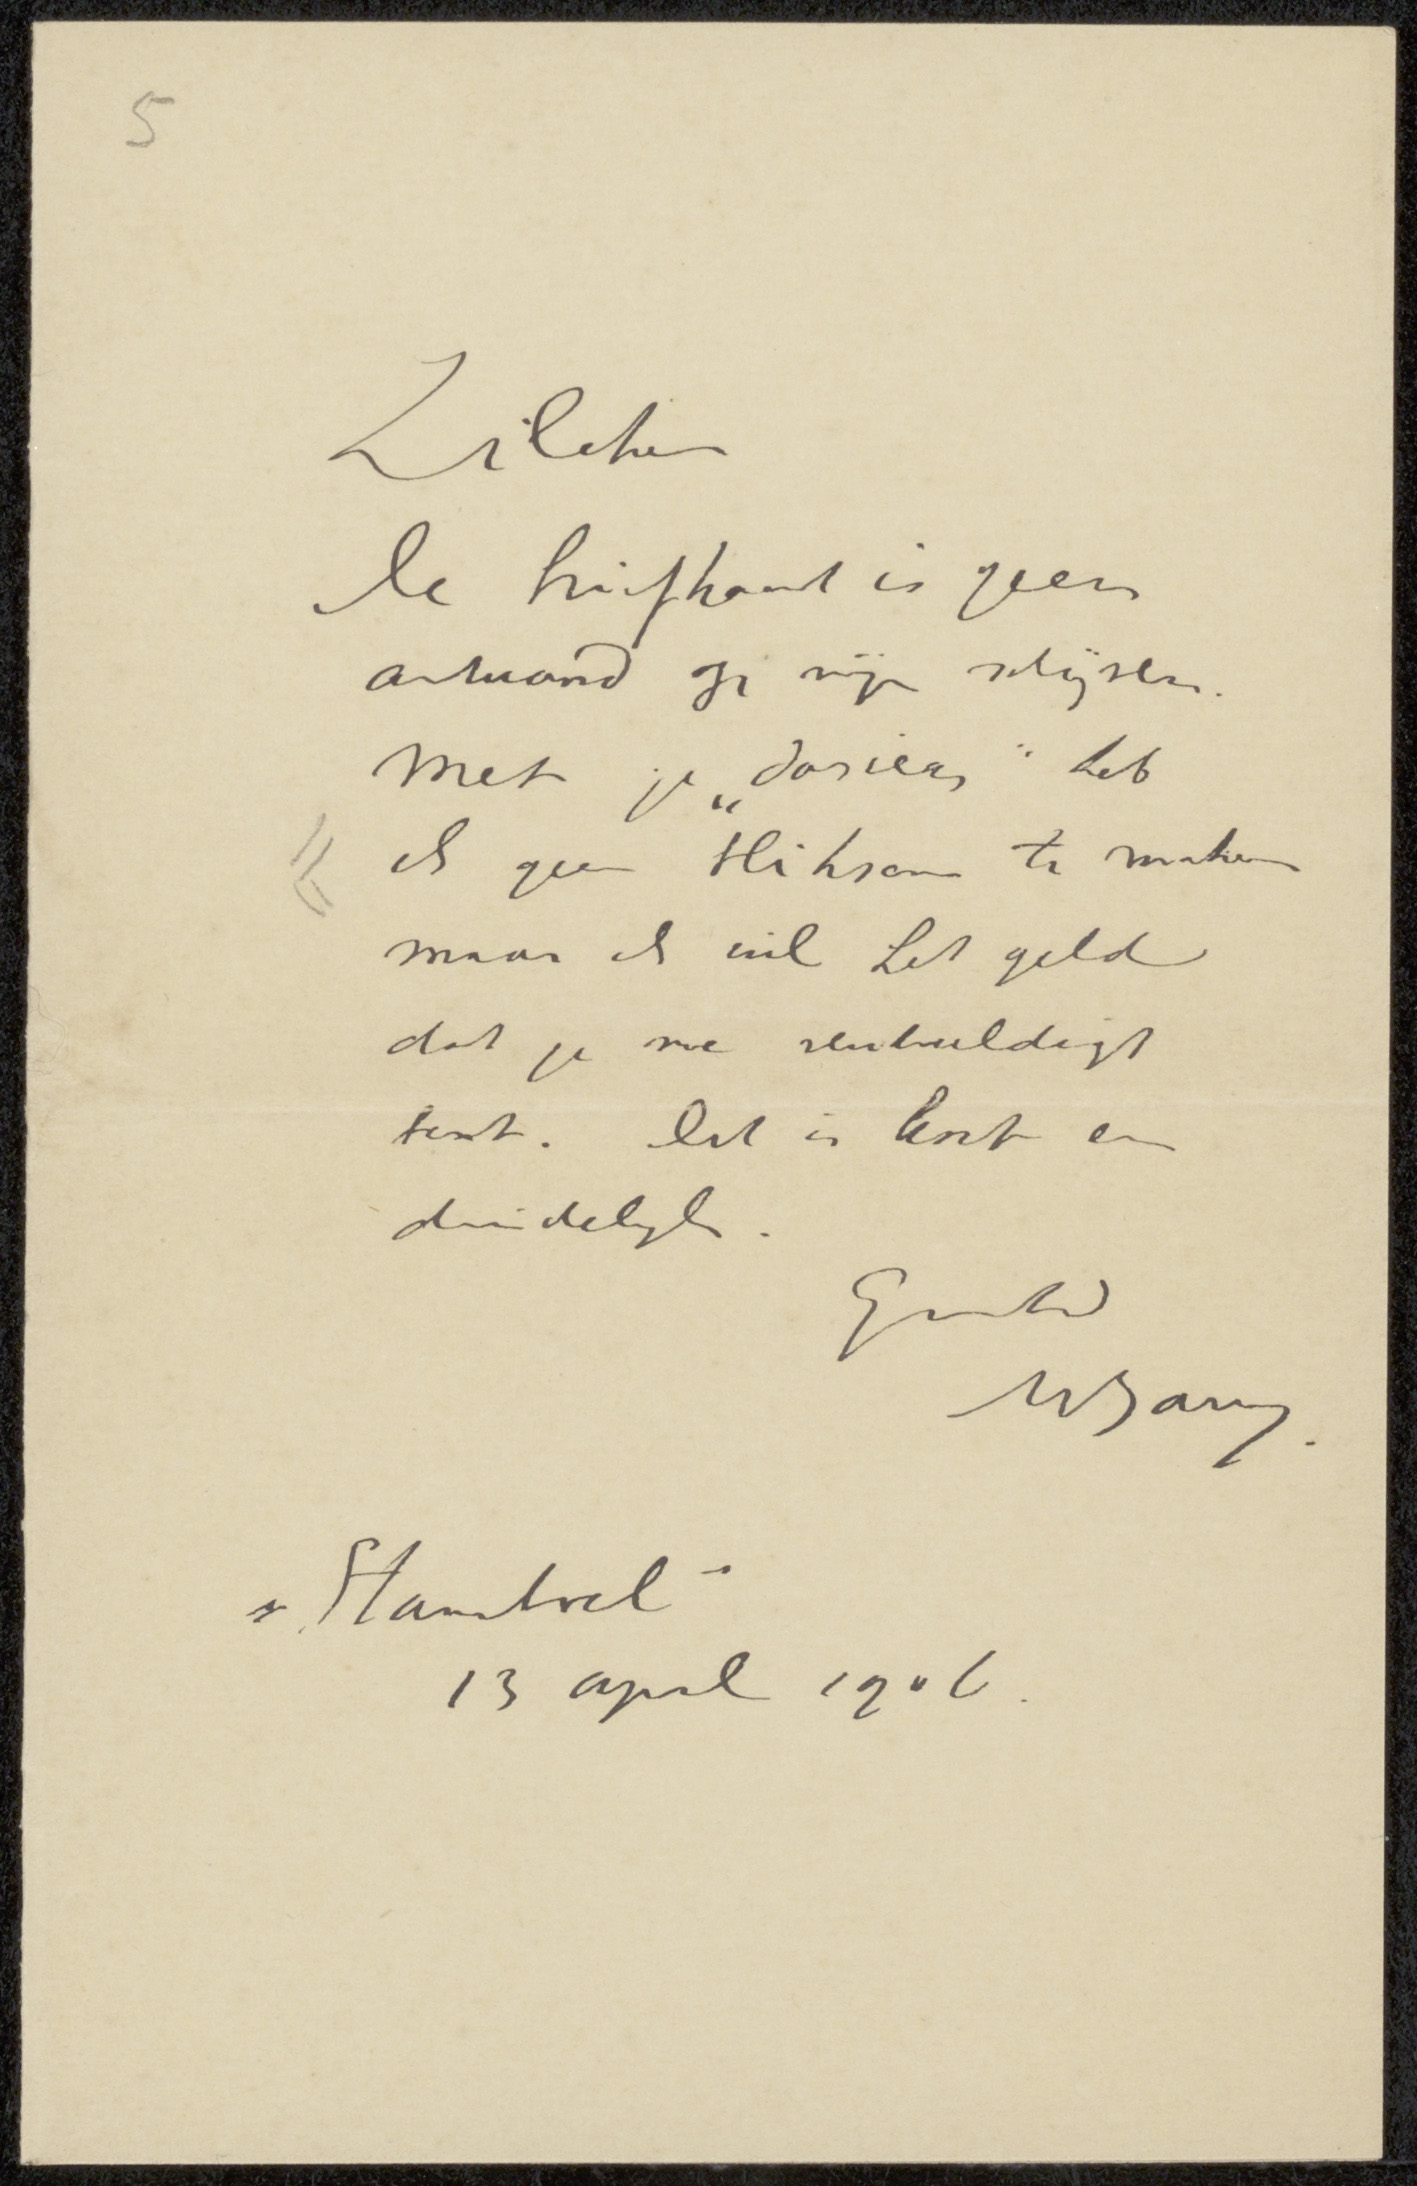 5
Zilcken
De briefkaart is geen
antwoord op mijn schrijven.
Met je „dossiers" heb
ik geen te maken
maar ik wil het geld
dat je me verschuldigd
bent. Dat is kort en
duidelijk.
Gegroet
"Stamboel"
13 april 1906.